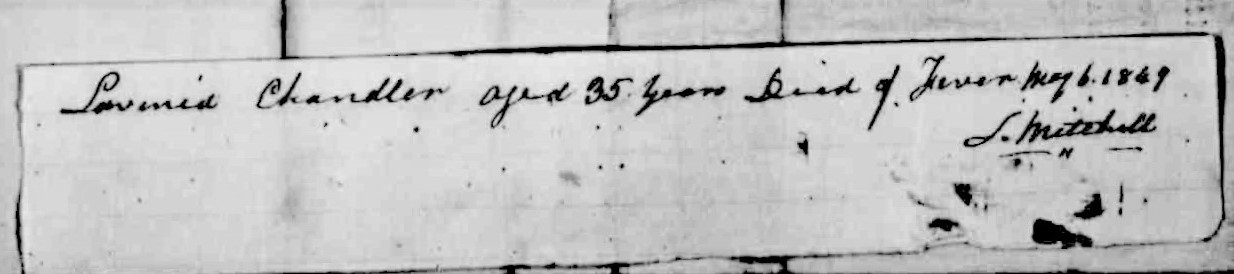 Lavinia Chandler aged 35 Years Died of Fever May 6. 1849
S. Mitchell